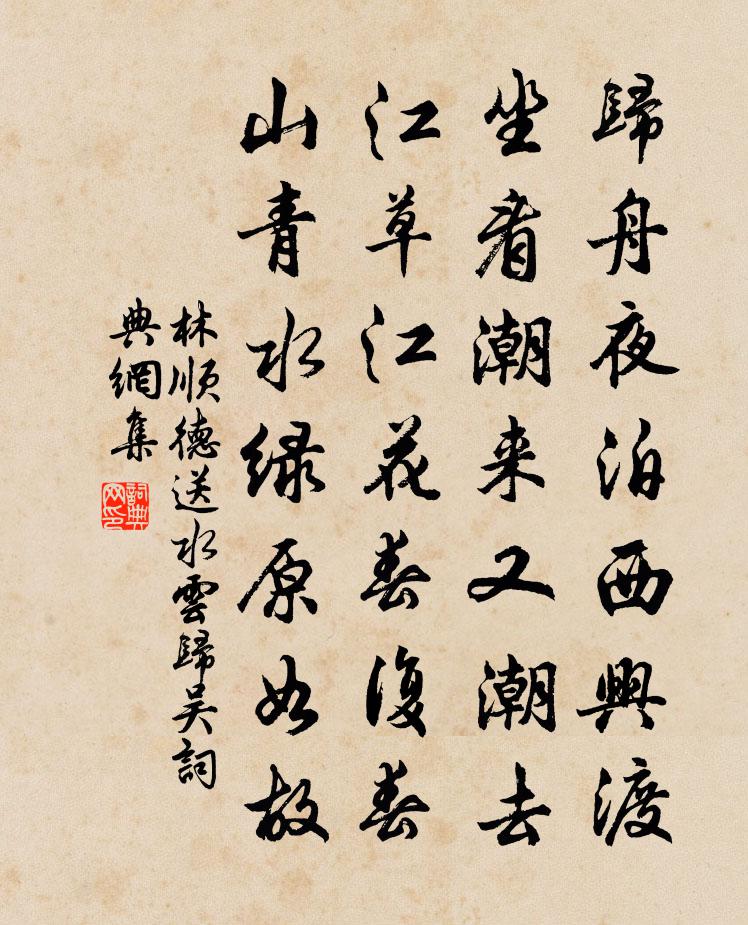 歸舟夜泊西興渡
坐看潮来又潮去
江草江花春復春
山青水緑原如故
林順德送水雲歸吴詞
典網集
詞典
网印